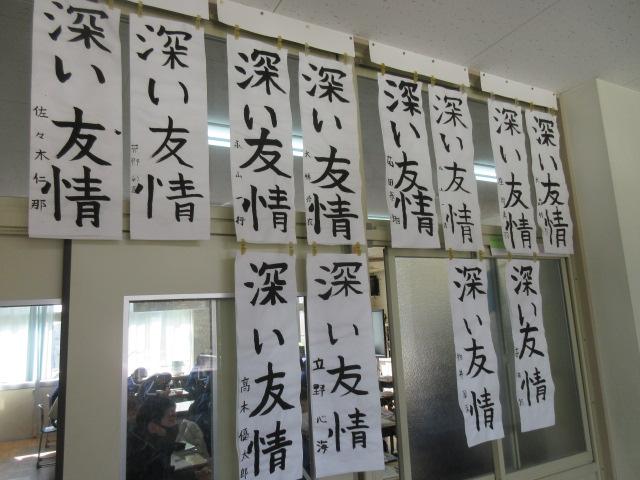 深い友情
佐々木仁那
深い友情
深い友情
深い友情
深い友情
深い友情
深い友情
深い友情
深い友情
高木優太郎
深い友情
立野心海
深い友情
深い友情